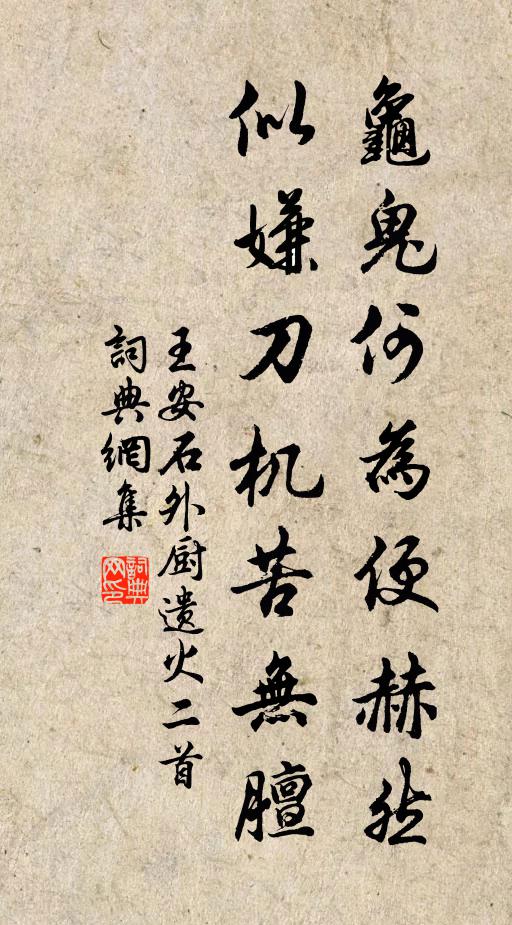 竈鬼何為便赫然
似嫌刀机苦無膻
王安石外厨遗火二首
詞典網集
詞典
网印